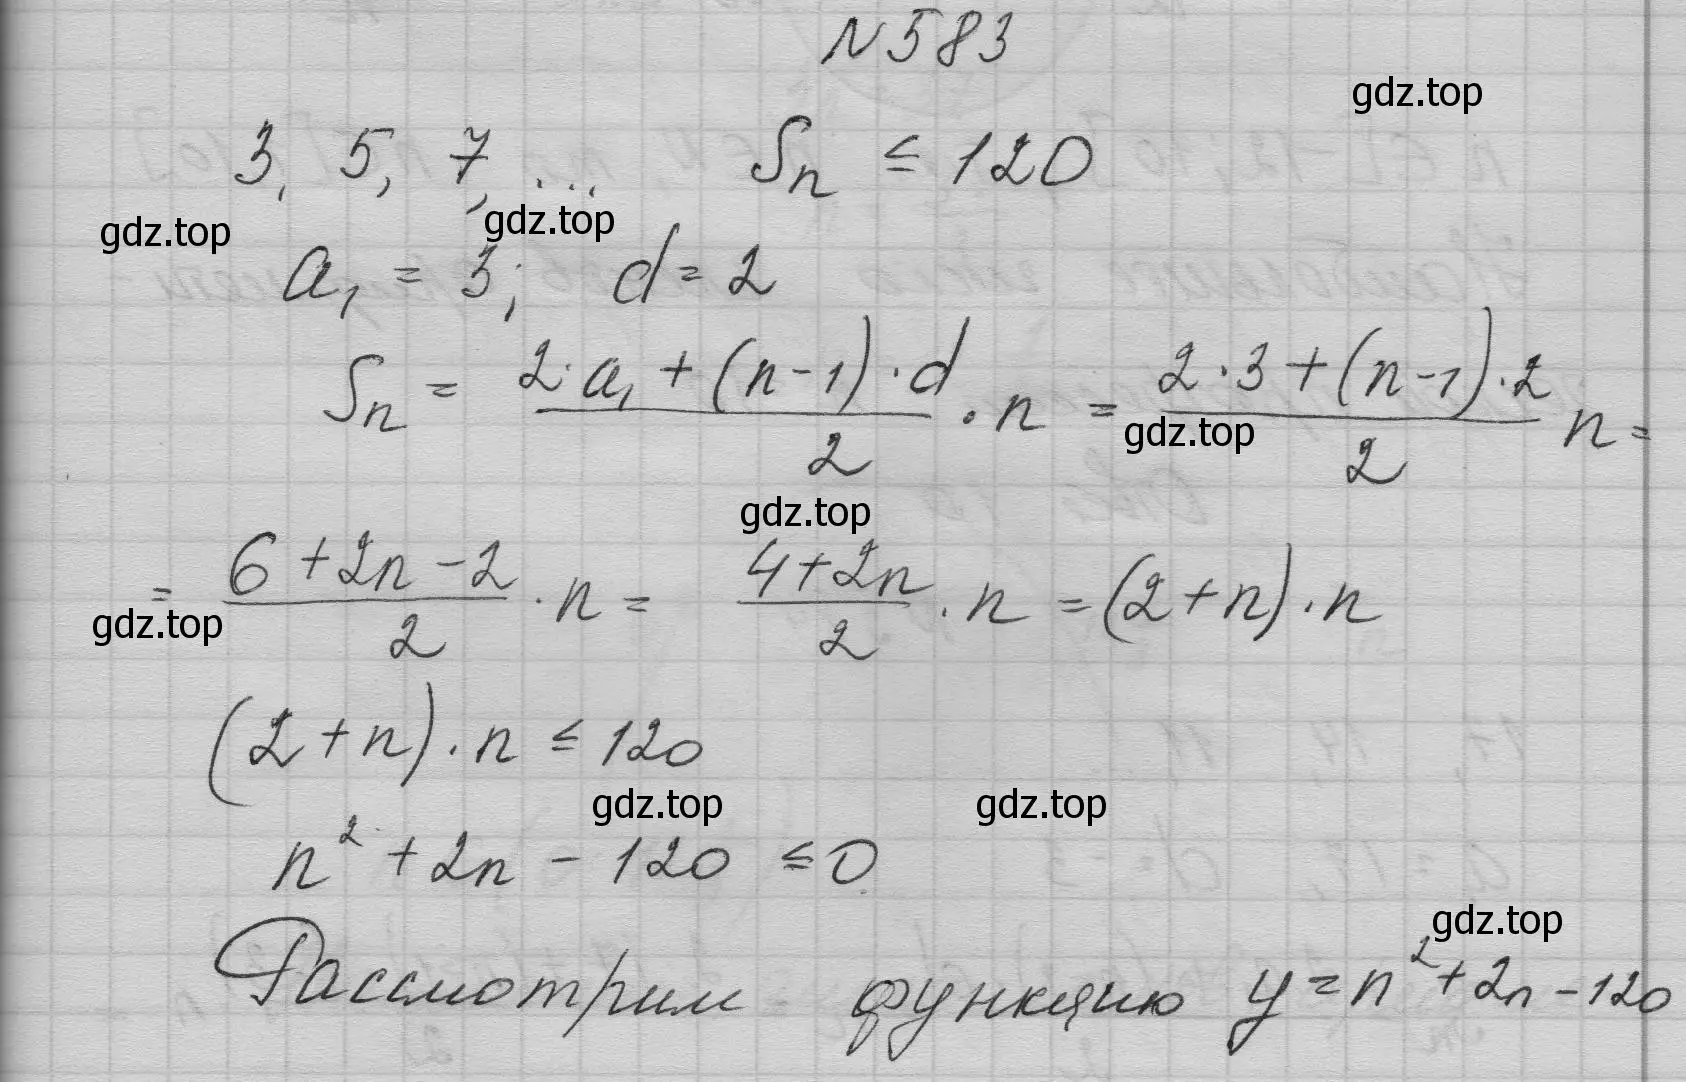 N583
gdz.top
3, 5, 7, ... Sn ≤ 120
gdz.top gdz.top
a₁ = 3; d = 2
Sn = (2·a₁ + (n-1)·d)/2 · n = (2·3 + (n-1)·2)/2 n =
gdz.top
gdz.top
= (6 + 2n - 2)/2 · n = (4 + 2n)/2 · n = (2 + n) · n
gdz.top
(2 + n) · n ≤ 120
gdz.top gdz.top
n² + 2n - 120 ≤ 0
gdz.top
Рассмотрим функцию y = n² + 2n - 120